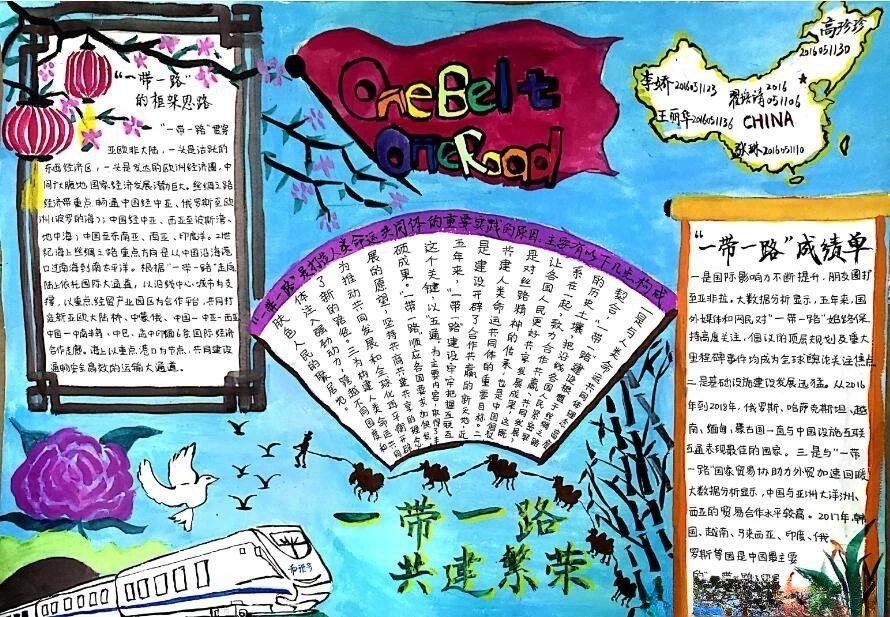 One Belt
One Road
高珍珍
2016051130
李娇 2016051123
2016
051106
王丽华 2016051136
CHINA
2016051110
“一带一路”
的框架思路
“一带一路”贯穿
亚欧非大陆，一头是活跃的
东西经济区，一头是发达的欧洲经济圈，中
间广大腹地国家经济发展潜力巨大。丝绸之路
经济带重点畅通中国经中亚、俄罗斯至欧
洲（波罗的海）；中国经中亚、西亚至波斯湾、
地中海；中国至东南亚、南亚、印度洋。21世
纪海上丝绸之路重点方向是从中国沿海港
口过南海到南太平洋。根据“一带一路”走向
陆上依托国际大通道，以沿线中心城市为支
撑，以重点经贸产业园区为合作平台，共同打
造新亚欧大陆桥、中蒙俄、中国—中亚—西亚
中国—中南半岛、中巴、孟中印缅6条国际经济
合作走廊。海上以重点港口为节点，共同建设
通畅安全高效的运输大通道。
“一带一路”是打造人类命运共同体的重要实践的原因，主要有以下几点构成
一是与人类命运共同体
契合。“一带一路”建设根植于丝绸之路
的历史土壤，把沿线各国人民紧密联
系在一起，致力合作共赢、共同发展，
让各国人民更好共享发展成果，这既
是对丝路精神的传承，也是中国倡议
共建人类命运共同体的重要目标。二
是建设开辟了合作共赢的新天地。近
五年来，一带一路建设牢牢把握互联互
这个关键，以五通为主要内容，取得了丰
硕成果。“一带一路”顺应各国要求加快发
展的愿望，坚持共商共建共享的理念
为推动共同发展和全球化再平衡开辟
了新的路径。三为构建人类命运共
体注入强劲动力，跨越不同国度和
肤色人民的聚居地。
“一带一路”成绩单
一是国际影响力不断提升，朋友圈打
至亚非拉。大数据分析显示，五年来，国
外媒体和网民对“一带一路”始终保
持高度关注，倡议的顶层规划及重大
里程碑事件均成为全球舆论关注焦点
二是基础设施建设发展迅猛。从2016
年到2018年，俄罗斯、哈萨克斯坦、越
南、缅甸、蒙古国一直与中国设施互联
互通表现最佳的国家。三是与“一带
一路”国家贸易协助力外贸加速回暖
大数据分析显示，中国与亚洲大洋洲、
西亚的贸易合作水平较高。2017年，韩
国、越南、马来西亚、印度、俄
罗斯等国是中国最主要
的“一带一路”贸易
一带一路
共建繁荣
和谐号